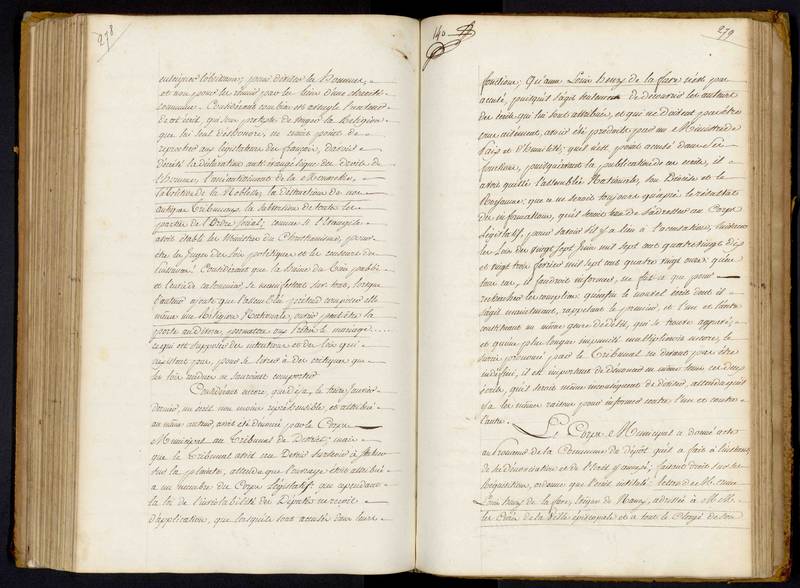 278
enseigner l'obéissance, pour diviser les hommes,
et non pour les réunir par les liens d'une charité
commune. Considérant combien est aveugle l'auteur
de cet écrit, qui sous prétexte de venger la Religion
que lui seul déshonore, ne craint point de
reprocher aux législateurs des français, d'avoir
décrété la déclaration anti évangélique des droits de
l'homme, l'anéantissement de la Monarchie,
l'abolition de la Noblesse, la destruction de nos
antiques Tribunaux, la subversion de toutes les
parties de l'Ordre social; comme si l'Evangile
avoit établi les Ministres du Christianisme, pour
être les Juges des Loix politiques et les censeurs de
Considérant que la haine du bien public
et l'envie de calomnier se manifestent sur tout, lorsque
l'auteur ajoute que l'assemblée prétend composer elle
même une Religion Nationale, ouvrir peut être la
porte au divorce, permettre aux Prêtres le mariage....
ce qui est supposer des intentions et des loix qui
n'existent pas, pour se livrer à des critiques que
les loix mêmes ne sauroient comporter
Considérant encore, que déjà, le treize Janvier
dernier, un écrit non moins repréhensible, et attribué
au même auteur avoit été dénoncé par le Corps
Municipal au Tribunal de District; mais
que le Tribunal avoit cru devoir surseoir à statuer
sur la plainte, attendu que l'ouvrage étoit attribué
à un membre du Corps Législatif: que cependant
la loi de l'inviolabilité des Députés ne reçoit
d'application, que lorsqu'ils sont accusés dans leurs
140
279
fonctions; Qu'ainsi Louis henry de la fare n'est pas
accusé, puisqu'il s'agit seulement de découvrir les auteurs
des écrits qui lui sont attribués, et qui ne doivent pas être
communément, avoir été produits par un Ministre de
Paix et d'humilité; qu'il n'est point accusé dans ses
fonctions, puisqu'avant la publication de ces écrits, il
avoit quitté l'assemblée Nationale, son Diocèse et le
Royaume; que ce ne seroit toujours qu'après le résultat
des informations, qu'il seroit tems de s'adresser au Corps
Législatif, pour savoir s'il y a lieu à l'accusation, suivant
les Loix des vingt sept Juin mil sept cent quatre vingt dix
et vingt trois février mil sept cent quatre vingt onze; qu'en
tous cas, il faudroit informer, ne fût ce que pour
rechercher les complices: qu'enfin le nouvel écrit dont il
s'agit maintenant, rappelant le premier, et l'un et l'autre
constituant un même genre de délit, qui se trouve aggravé;
et qu'une plus longue impunité multiplieroit encore, le
sursis prononcé par le Tribunal ne devant pas être
indéfini, il est important de dénoncer en même tems ces deux
écrits, qu'il seroit même inconséquent de diviser, attendu qu'il
y a les mêmes raisons pour informer contre l'un et contre
l'autre.
Le Corps Municipal a donné acte
au Procureur de la Commune du dépôt qu'il a fait à l'instant,
de sa dénonciation et de l'écrit y annexé; faisant droit sur son
Réquisitoire, ordonne que l'écrit intitulé: lettres de M.
Louis henry de la fare, Evêque de Nancy, adressée à M.M.
les Curés de la Ville épiscopale et à tout le Clergé de son